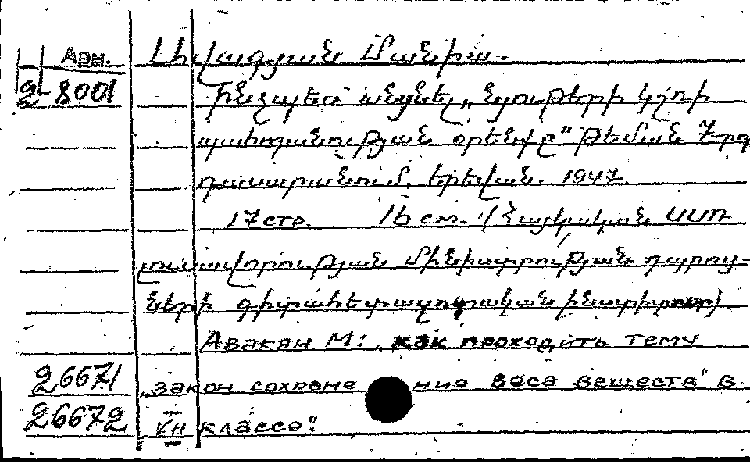 Арм.
2-8001
Ինչպես անցնել „Նյութերի կշռի
պահպանության օրենքը" թեման 7-րդ
դասարանում. Երևան. 1947
17 стр. 16 см. (Հայկական ՍՍՌ
լուսավորության մինիստրության դպրոց-
ների գիտահետազոտական ինստիտուտ)
Авакян М: „как проходить тему
26671 „закон сохране ния веса веществ" в
26672 VII классе".